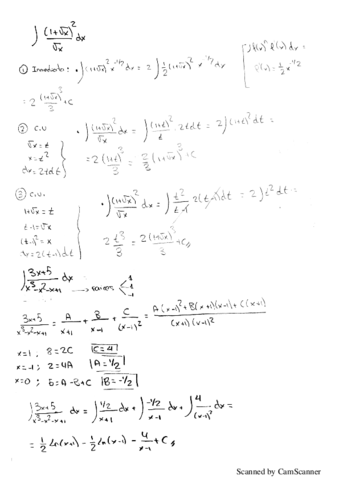 ∫ (1+√x)²/√x dx
① Inmediata: • ∫(1+√x)² x^(-1/2) dx = 2∫ 1/2 (1+√x)² x^(-1/2) dx =
= 2 (1+√x)³/3 + C
② C.V • ∫ (1+√x)²/√x dx = ∫ (1+t)²/t · 2t dt = 2∫(1+t)² dt =
√x = t
x = t²
dx = 2t dt
= 2 (1+t)³/3 = 2/3 (1+√x)³ + C
③ C.V. • ∫ (1+√x)²/√x dx = ∫ t²/(t-1) 2(t-1)dt = 2∫t² dt =
1+√x = t
t-1 = √x
(t-1)² = x
dx = 2(t-1)dt
2 t³/3 = 2(1+√x)³/3 + C
∫ (3x+5)/(x³-x²-x+1) dx
(3x+5)/(x³-x²-x+1) = A/(x+1) + B/(x-1) + C/(x-1)² = (A(x-1)² + B(x+1)(x-1) + C(x+1))/((x+1)(x-1)²)
x=1, 8=2C C=4
x=-1; 2=4A A=1/2
x=0; 5=A-B+C B=-1/2
∫ (3x+5)/(x³-x²-x+1) dx = ∫ (1/2)/(x+1) dx + ∫ (-1/2)/(x-1) dx + ∫ 4/(x-1)² dx =
= 1/2 ln(x+1) - 1/2 ln(x-1) - 4/(x-1) + C
Scanned by CamScanner